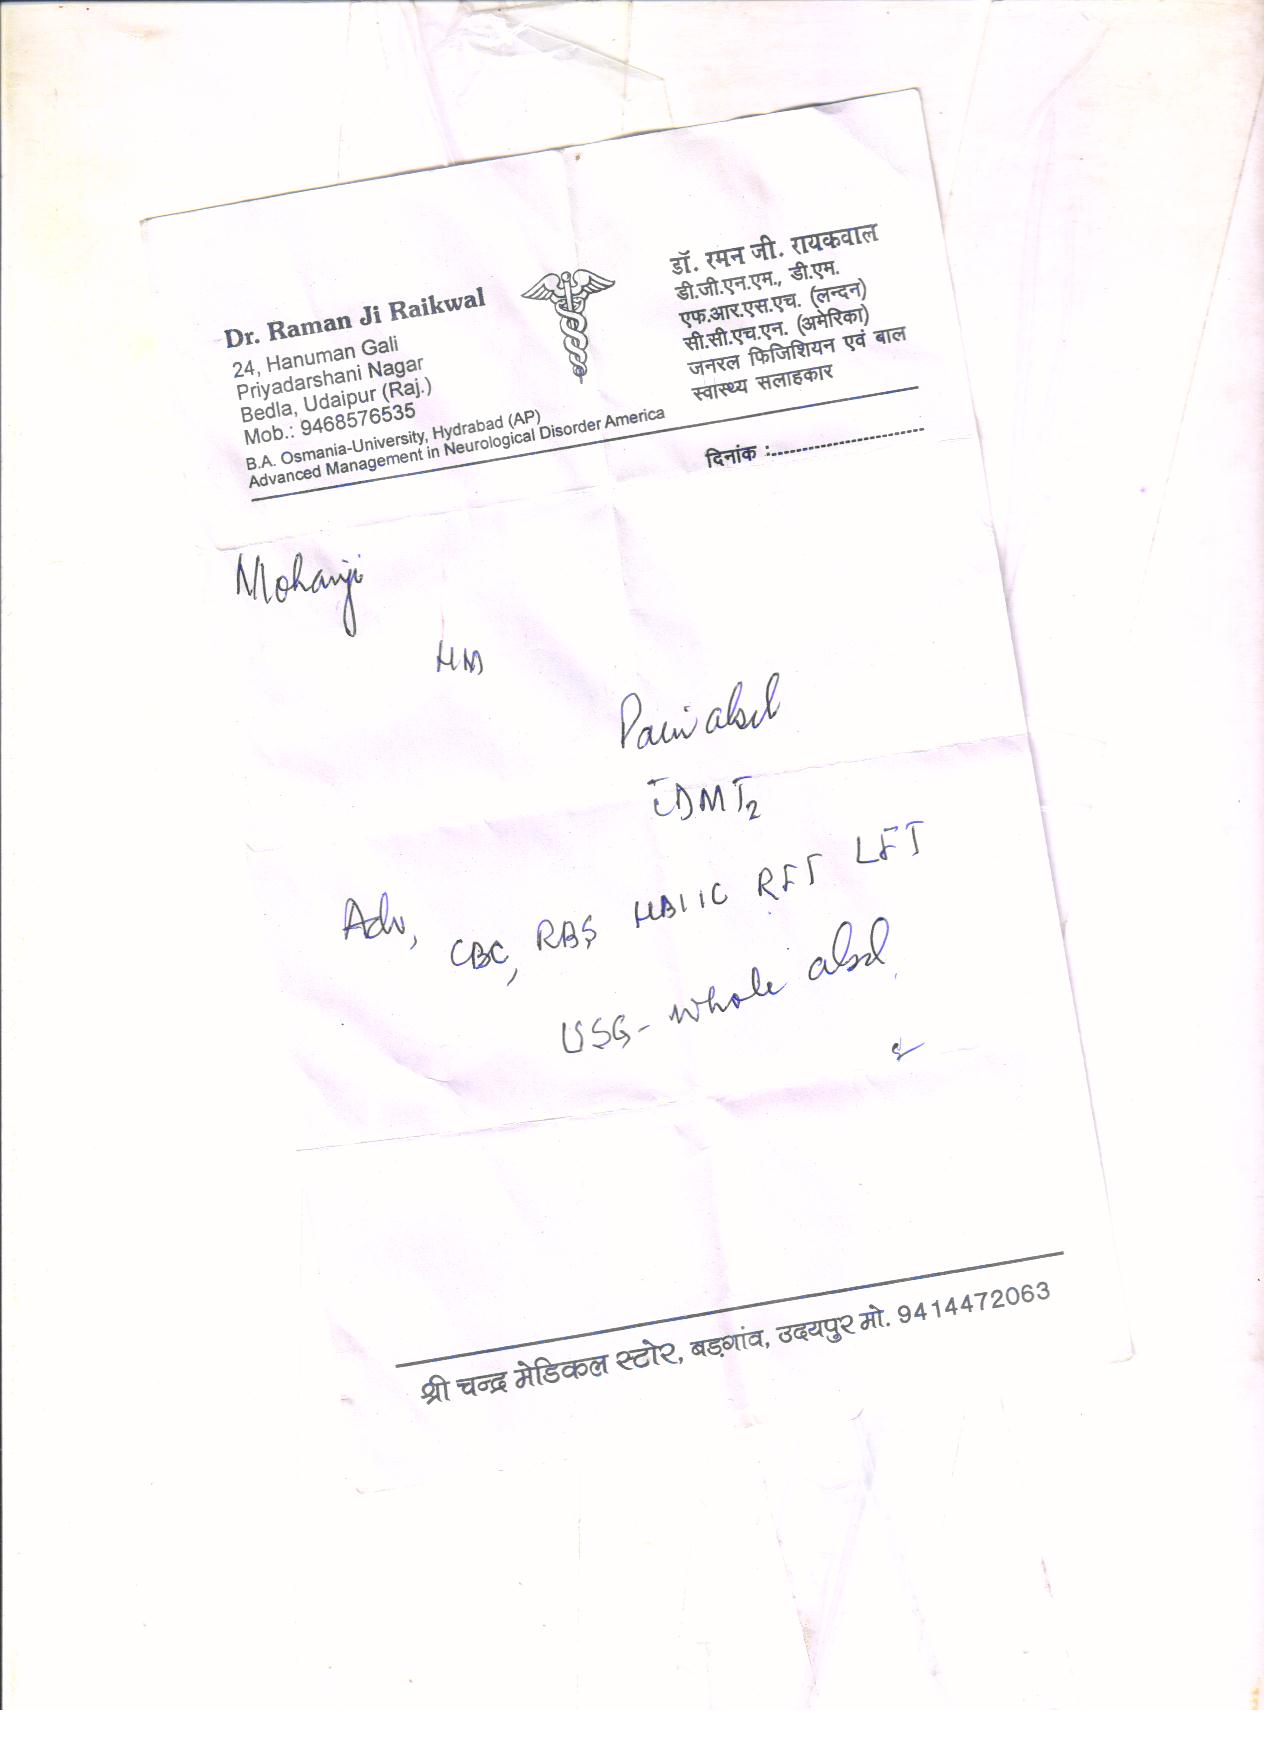 Dr. Raman Ji Raikwal
24, Hanuman Gali
Priyadarshani Nagar
Bedla, Udaipur (Raj.)
Mob.: 9468576535
B.A. Osmania-University, Hydrabad (AP)
Advanced Management in Neurological Disorder America
डॉ. रमन जी. रायकवाल
डी.जी.एन.एम., डी.एम.
एफ.आर.एस.एच. (लन्दन)
सी.सी.एच.एन. (अमेरिका)
जनरल फिजिशियन एवं बाल
स्वास्थ्य सलाहकार
दिनांक :........................
Mohanji
Pain abd
DMT2
Adv, CBC, RBS HB11C RFT LFT
USG- whole abd
श्री चन्द्र मेडिकल स्टोर, बड़गांव, उदयपुर मो. 9414472063